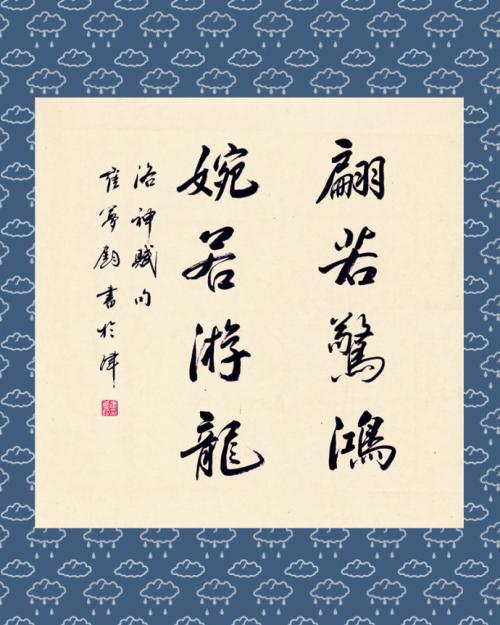 翩若驚鴻
婉若游龍
洛神賦句
崔寒鈞書於津